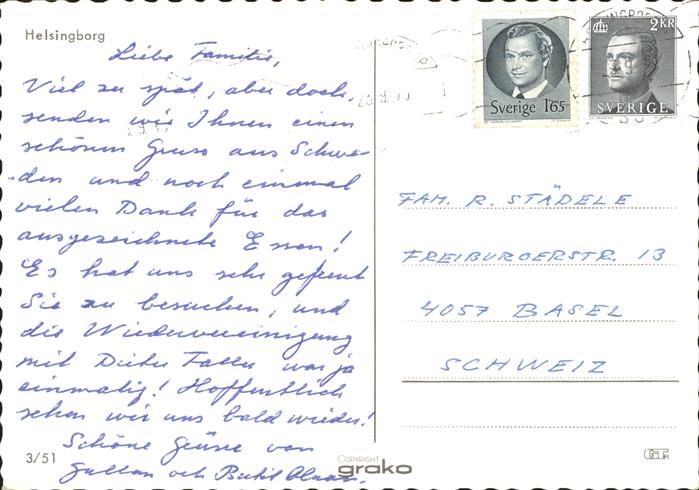 Helsingborg
Liebe Familie,
Viel zu spät, aber doch,
senden wir Ihnen einen
schönen Gruss aus Schwe-
den und noch einmal
vielen Dank für das
ausgezeichnete Essen!
Es hat uns sehr gefreut
Sie zu besuchen, und
die Wiedervereinigung
mit Dieter Faller war ja
einmalig! Hoffentlich
sehen wir uns bald wieder!
Schöne Grüsse von
och
3/51
COPYRIGHT
grako
Sverige 165
2 KR
SVERIGE
FAM. R. STÄDELE
FREIBURGERSTR. 13
4057 BASEL
SCHWEIZ